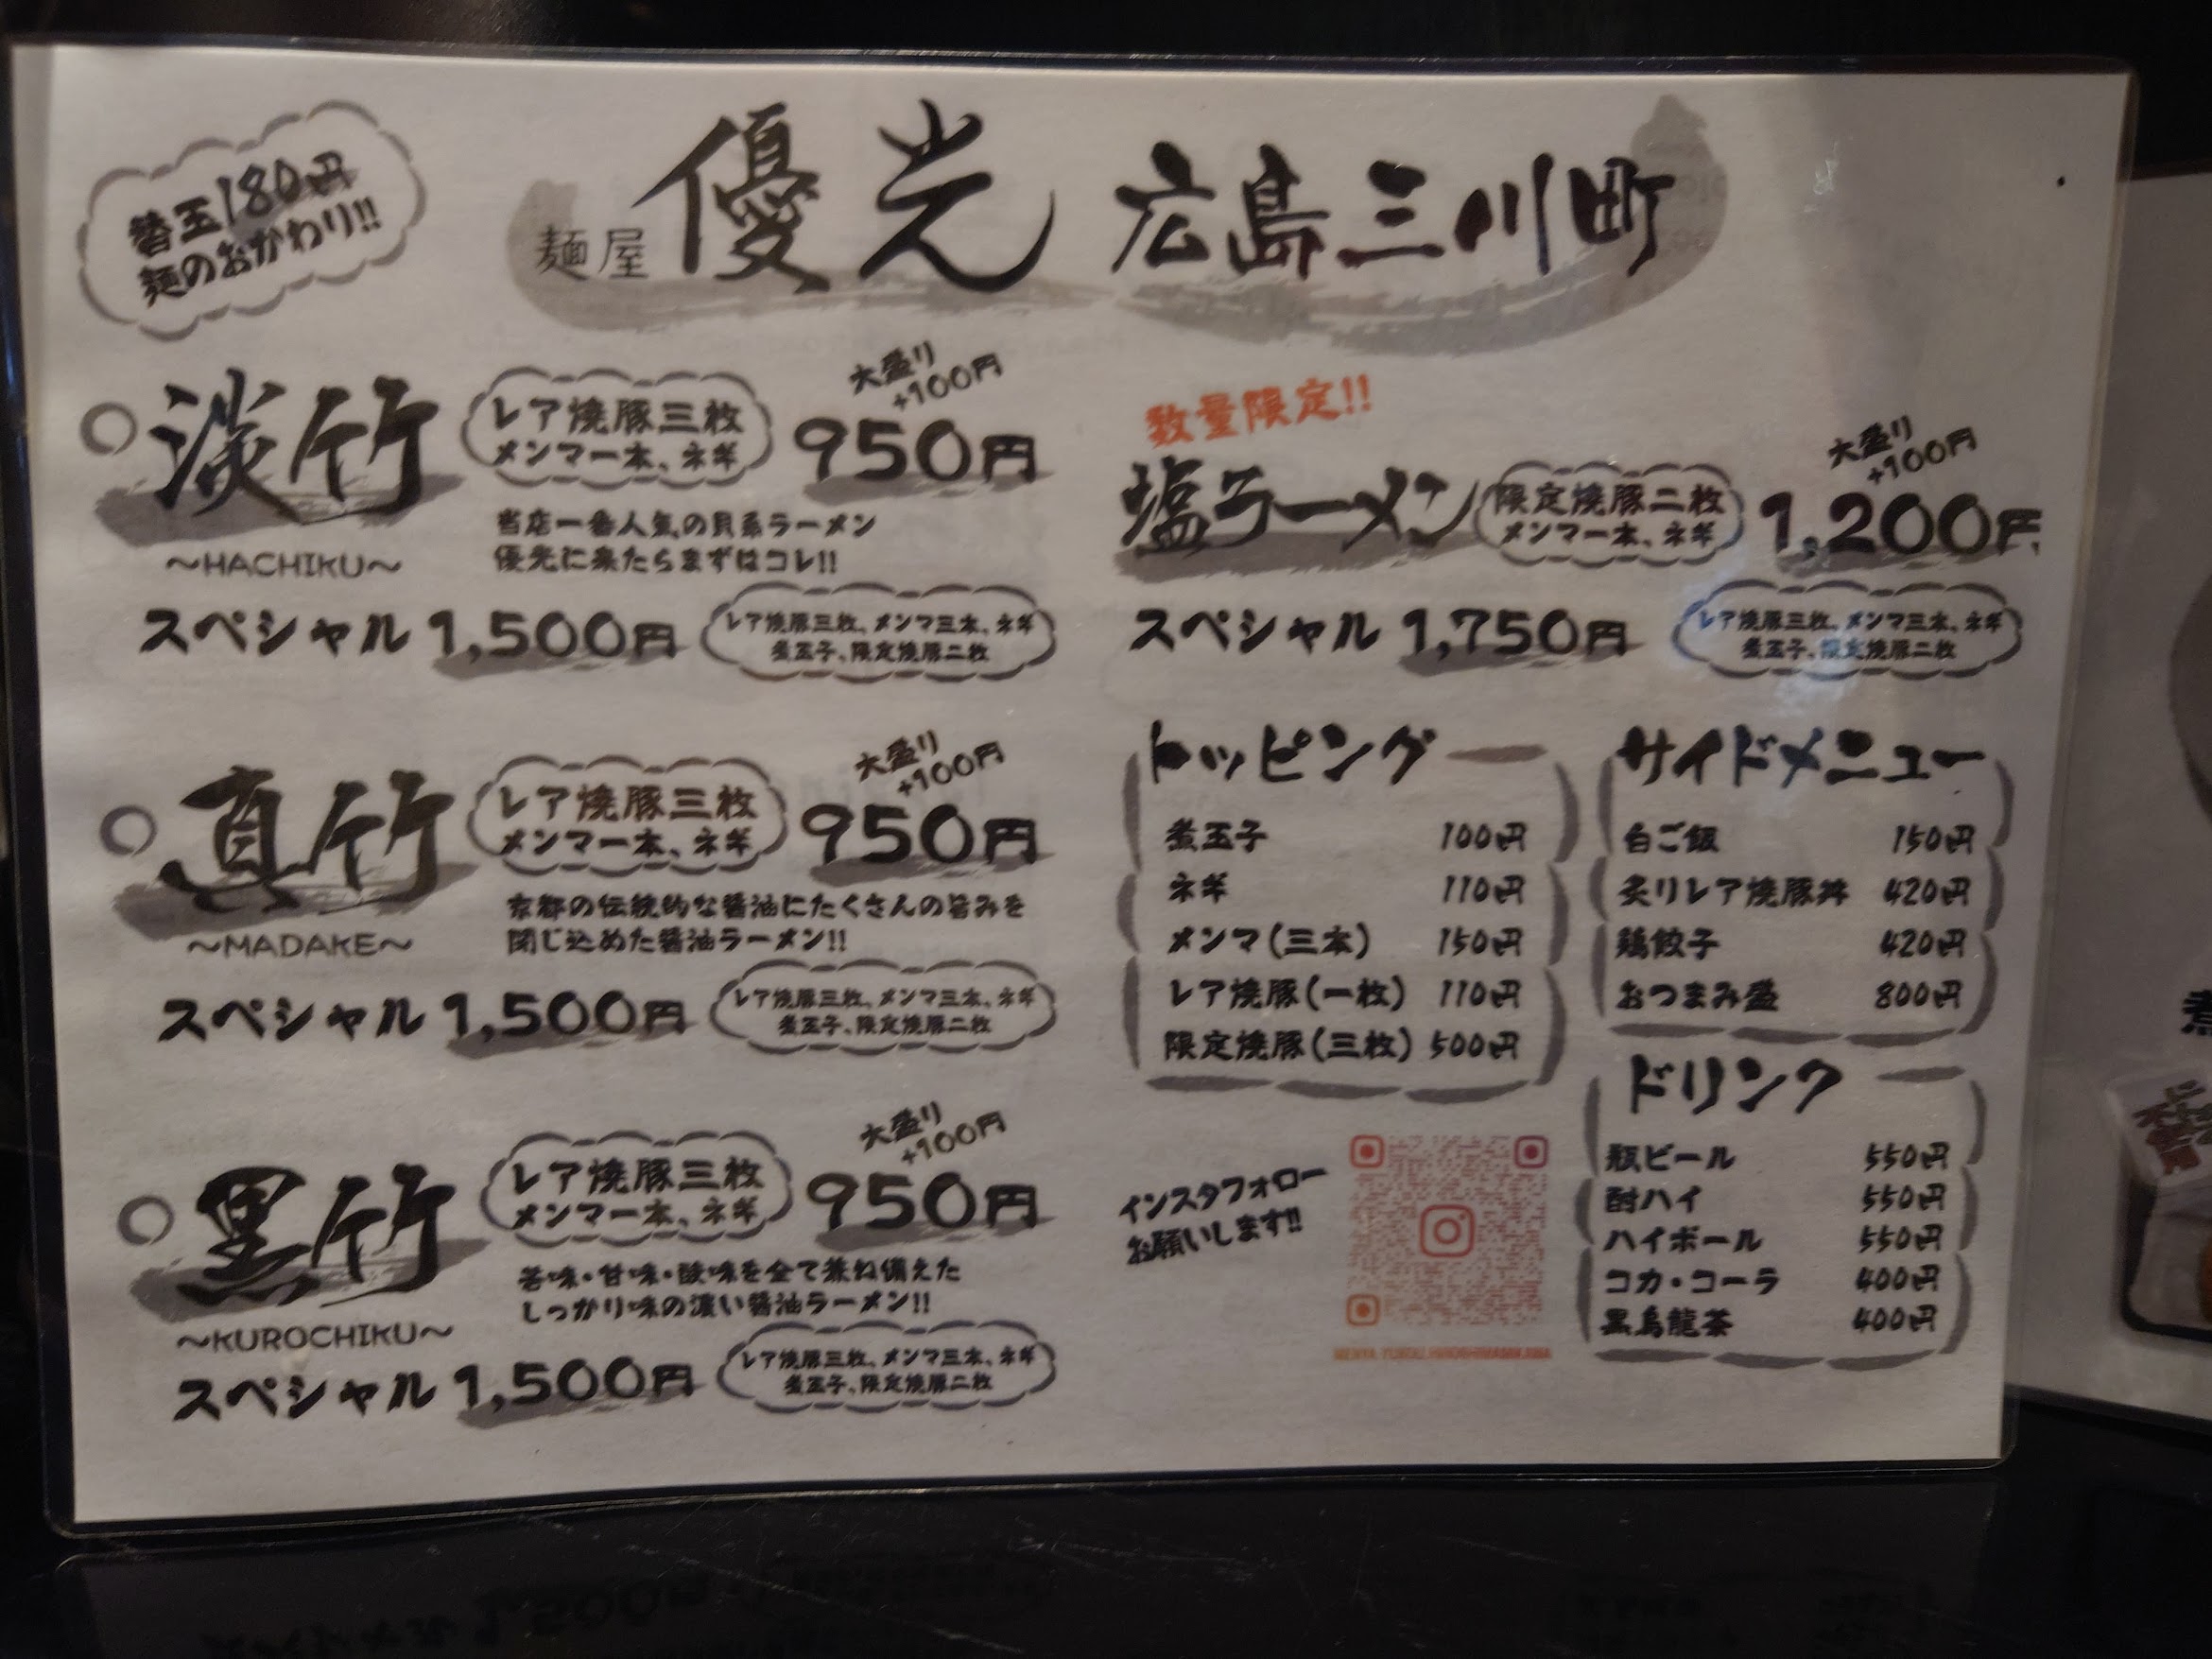 替玉180円
麺のおかわり!!
麺屋 優光 広島三川町
淡竹
～HACHIKU～
レア焼豚三枚
メンマ一本、ネギ
大盛り
+100円
950円
当店一番人気の貝系ラーメン
優光に来たらまずはコレ!!
スペシャル 1,500円
レア焼豚三枚、メンマ三本、ネギ
煮玉子、限定焼豚二枚
真竹
～MADAKE～
レア焼豚三枚
メンマ一本、ネギ
大盛り
+100円
950円
京都の伝統的な醤油にたくさんの旨みを
閉じ込めた醤油ラーメン!!
スペシャル 1,500円
レア焼豚三枚、メンマ三本、ネギ
煮玉子、限定焼豚二枚
黒竹
～KUROCHIKU～
レア焼豚三枚
メンマ一本、ネギ
大盛り
+100円
950円
苦味・甘味・酸味を全て兼ね備えた
しっかり味の濃い醤油ラーメン!!
スペシャル 1,500円
レア焼豚三枚、メンマ三本、ネギ
煮玉子、限定焼豚二枚
数量限定!!
塩ラーメン
限定焼豚二枚
メンマ一本、ネギ
大盛り
+100円
1,200円
スペシャル 1,750円
レア焼豚三枚、メンマ三本、ネギ
煮玉子、限定焼豚二枚
トッピング
煮玉子 100円
ネギ 110円
メンマ(三本) 150円
レア焼豚(一枚) 110円
限定焼豚(三枚) 500円
サイドメニュー
白ご飯 150円
炙りレア焼豚丼 420円
鶏餃子 420円
おつまみ盛 800円
ドリンク
瓶ビール 550円
酎ハイ 550円
ハイボール 550円
コカ・コーラ 400円
黒烏龍茶 400円
インスタフォロー
お願いします!!
煮